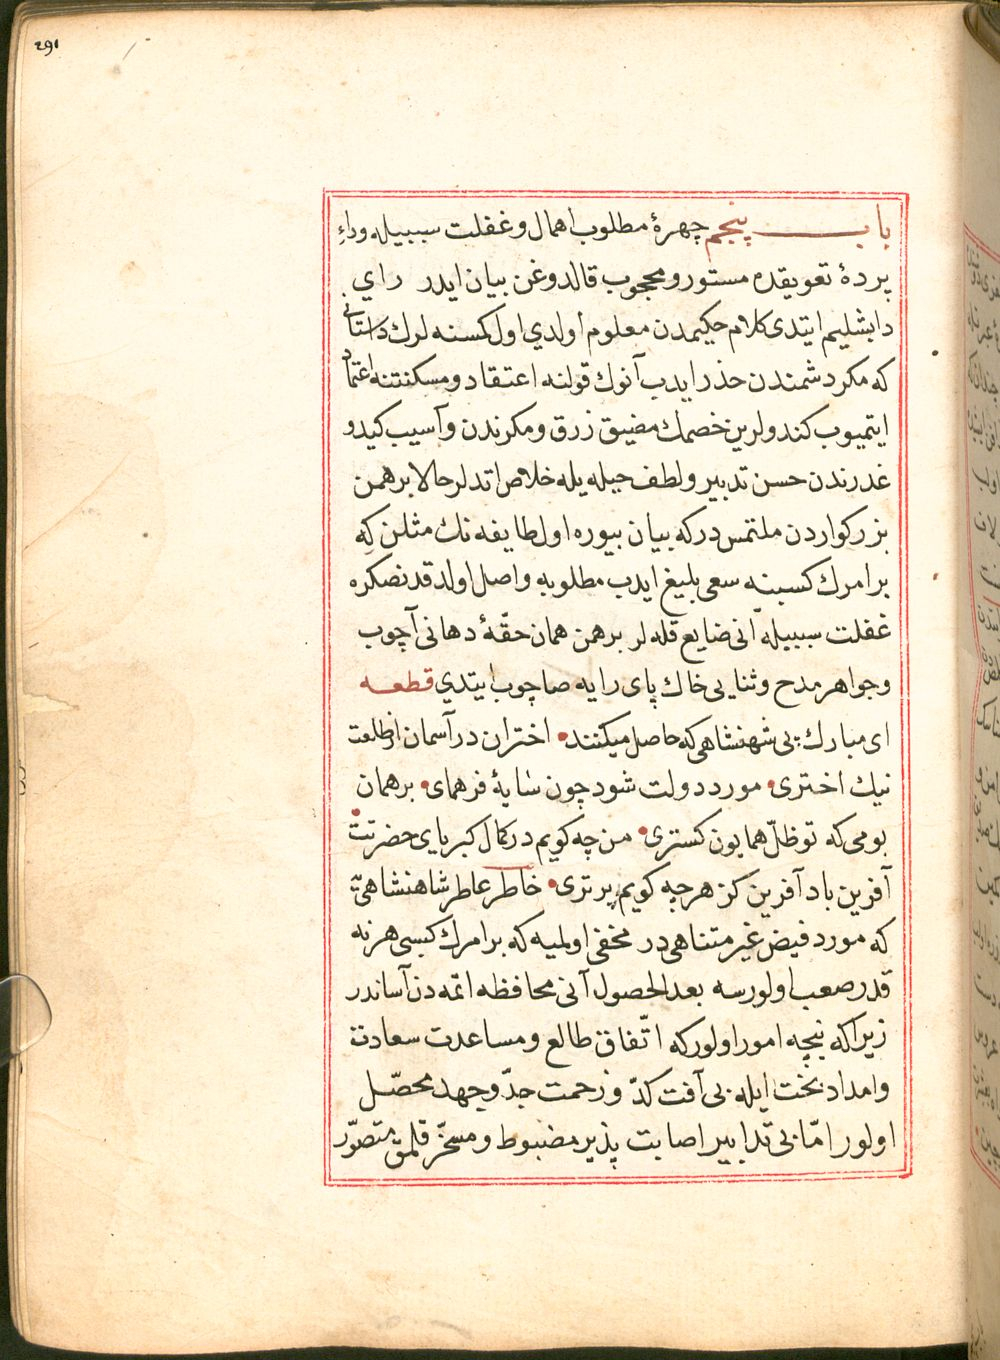 ٢٩١
باب پنجم چهرۀ مطلوب اهمال و غفلت سببیله وراء
پردۀ تعویقده مستور و محجوب قالدوغن بیان ایدر رای
دابشلیم ایتدی کلام حکیمدن معلوم اولدی اول کمسنه لرك داستانی
که مکر دشمندن حذر ایدب آنوك قولنه اعتقاد و مسکنتنه اعتماد
ایتمیوب کندولرین خصمك مضیق زرق و مکرندن و آسیب کید و
غدرندن حسن تدبیر و لطف حیله یله خلاص اتدلر حالا برهمن
بزرکواردن ملتمسدرکه بیان بیوره اول طایفه نك مثلن که
بر امرك کسبنه سعی بلیغ ایدب مطلوبه واصل اولدقدنصکره
غفلت سببیله آنی ضایع قله لر برهمن همان حقّۀ دهانی آچوب
و جواهر مدح و ثنایی خاك پای رایه صاچوب ایتدی قطعه
ای مبارك پی شهنشاهی که حاصل میکنند اختران در آسمان از طلعت
نیك اختری مورد دولت شود چون سایۀ فر همای بر همان
بومی که تو ظلّ همایون کستری من چه کویم در کمال کبریای حضرتت
آفرین باد آفرین کز هر چه کویم برتری خاطر عاطر شاهنشاهیّه
که مورد فیض غیر متناهی در مخفی اولمیه که بر امرك کسبی هر نه
قدر صعب اولورسه بعد الحصول آنی محافظه اتمه دن آساندر
زیرا که نیجه امور اولور که اتّفاق طالع و مساعدت سعادت
و امداد بخت ایله بی آفت کدّ و زحمت جدّ و جهد محصّل
اولور امّا بی تدابیر اصابت پذیر مضبوط و مسخّر قلمق متصوّر